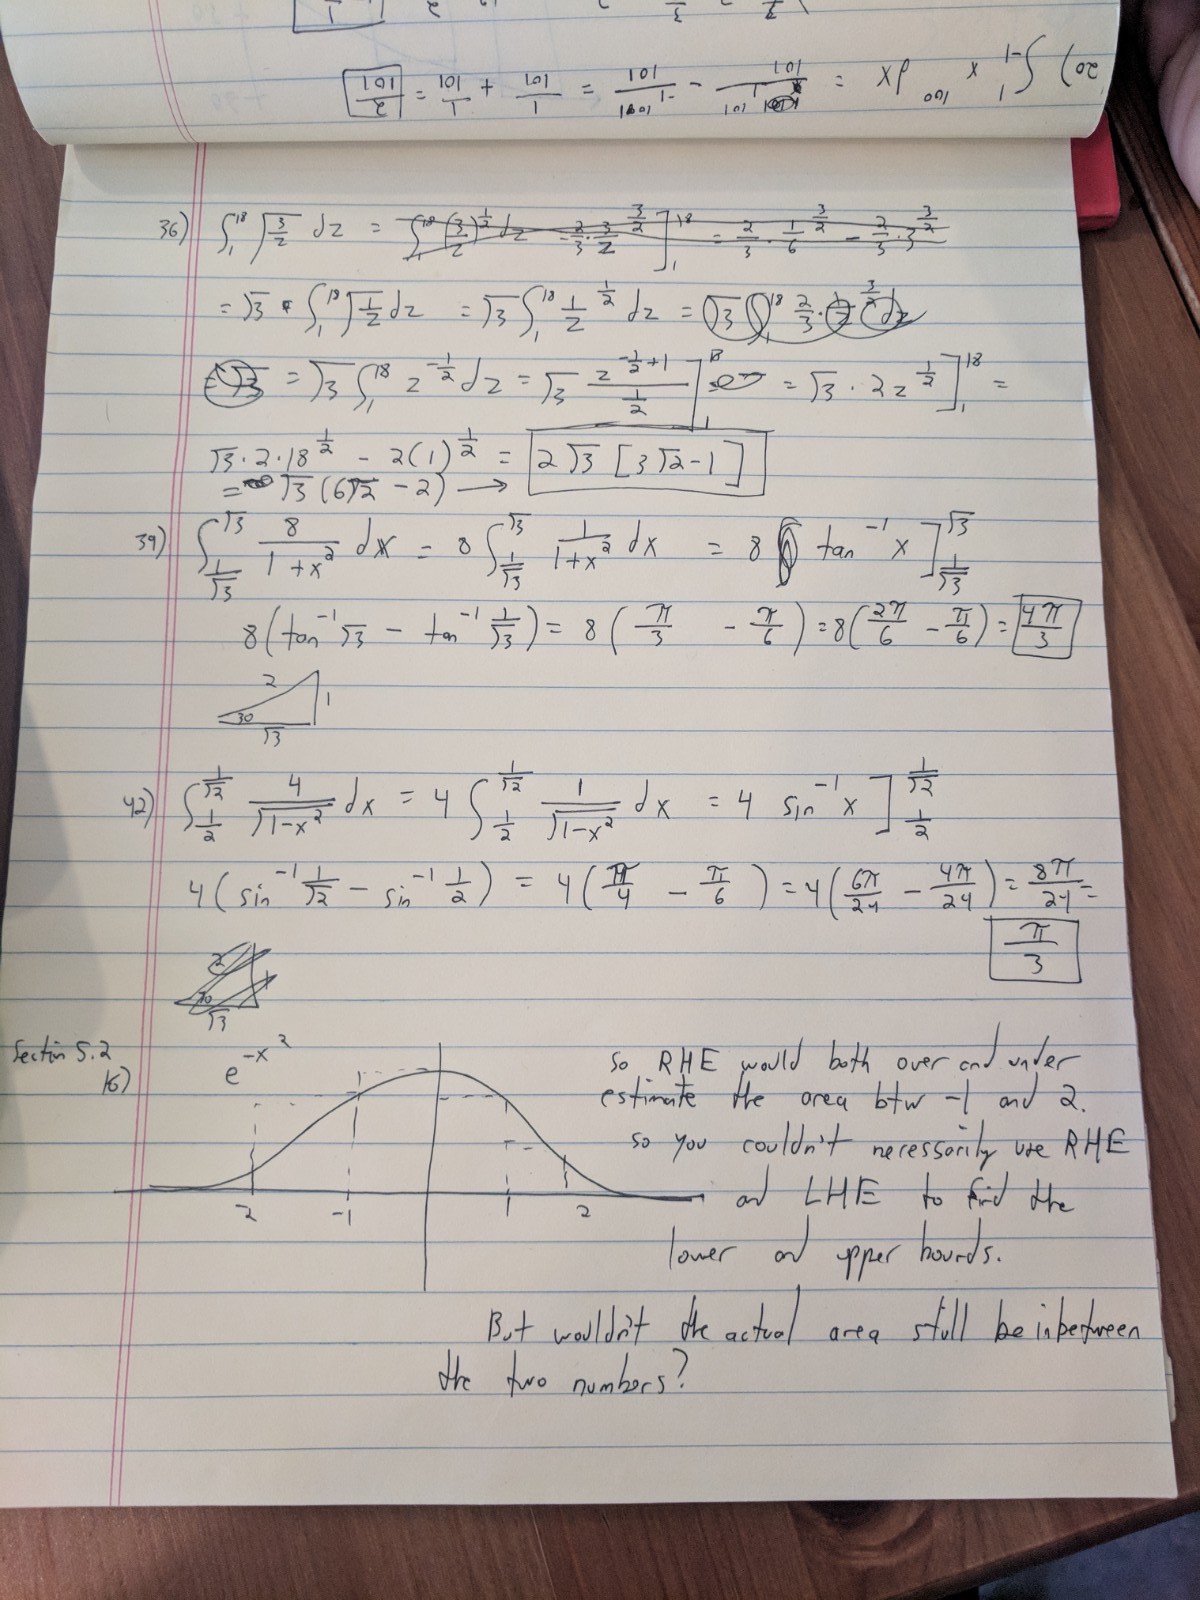 20) ∫_{-1}^{1} x^{100} dx = 1^{101}/101 - -1^{101}/101 = 1/101 + 1/101 = 2/101
36) ∫_1^{18} √(3/z) dz = ∫_1^{18} (3/z)^{1/2} dz = 2/3 · 3/z^{3/2} ]_1^{18} = 2/3 · 1/6^{3/2} - 2/3 · 3^{3/2}
= √3 · ∫_1^{18} √(1/z) dz = √3 ∫_1^{18} 1/z^{1/2} dz = √3 ∫_1^{18} 2/3 · dz
= √3 ∫_1^{18} z^{-1/2} dz = √3 z^{-1/2+1}/(1/2) ]_1^{18} = √3 · 2z^{1/2} ]_1^{18} =
√3 · 2 · 18^{1/2} - 2(1)^{1/2} = 2√3 [3√2 - 1]
= √3 (6√2 - 2) →
39) ∫_{1/√3}^{√3} 8/(1+x^2) dx = 8 ∫_{1/√3}^{√3} 1/(1+x^2) dx = 8 tan^{-1} x ]_{1/√3}^{√3}
8(tan^{-1} √3 - tan^{-1} 1/√3) = 8(π/3 - π/6) = 8(2π/6 - π/6) = 4π/3
2
1
30
√3
42) ∫_{1/2}^{1/√2} 4/√(1-x^2) dx = 4 ∫_{1/2}^{1/√2} 1/√(1-x^2) dx = 4 sin^{-1} x ]_{1/2}^{1/√2}
4(sin^{-1} 1/√2 - sin^{-1} 1/2) = 4(π/4 - π/6) = 4(6π/24 - 4π/24) = 8π/24 =
π/3
2
30
√3
Section 5.2
16)
e^{-x^2}
-2 -1 1 2
so RHE would both over and under
estimate the area btw -1 and 2.
so you couldn't necessarily use RHE
and LHE to find the
lower and upper bounds.
But wouldn't the actual area still be inbetween
the two numbers?